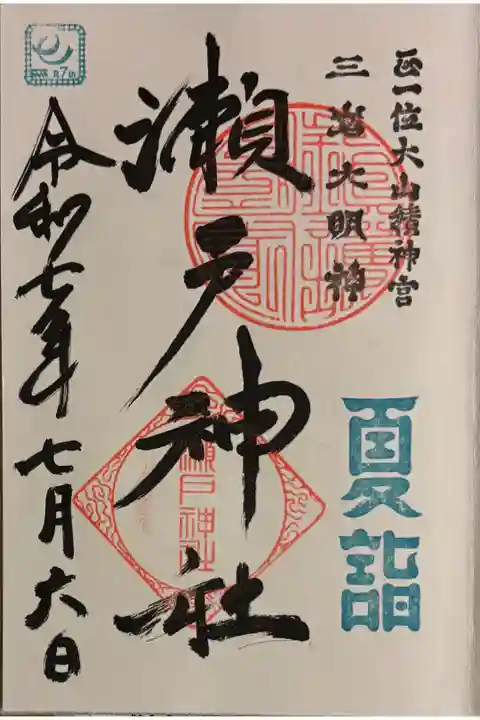 正一位大山積神宮
三嶋大明神
夏詣
瀬戸神社
瀬戸神社
令和七年七月六日